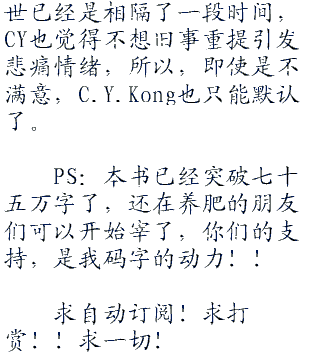 世已经是相隔了一段时间，
CY也觉得不想旧事重提引发
悲痛情绪，所以，即使是不
满意，C.Y.Kong也只能默认
了。
PS：本书已经突破七十
五万字了，还在养肥的朋友
们可以开始宰了，你们的支
持，是我码字的动力！！
求自动订阅！求打
赏！！求一切！